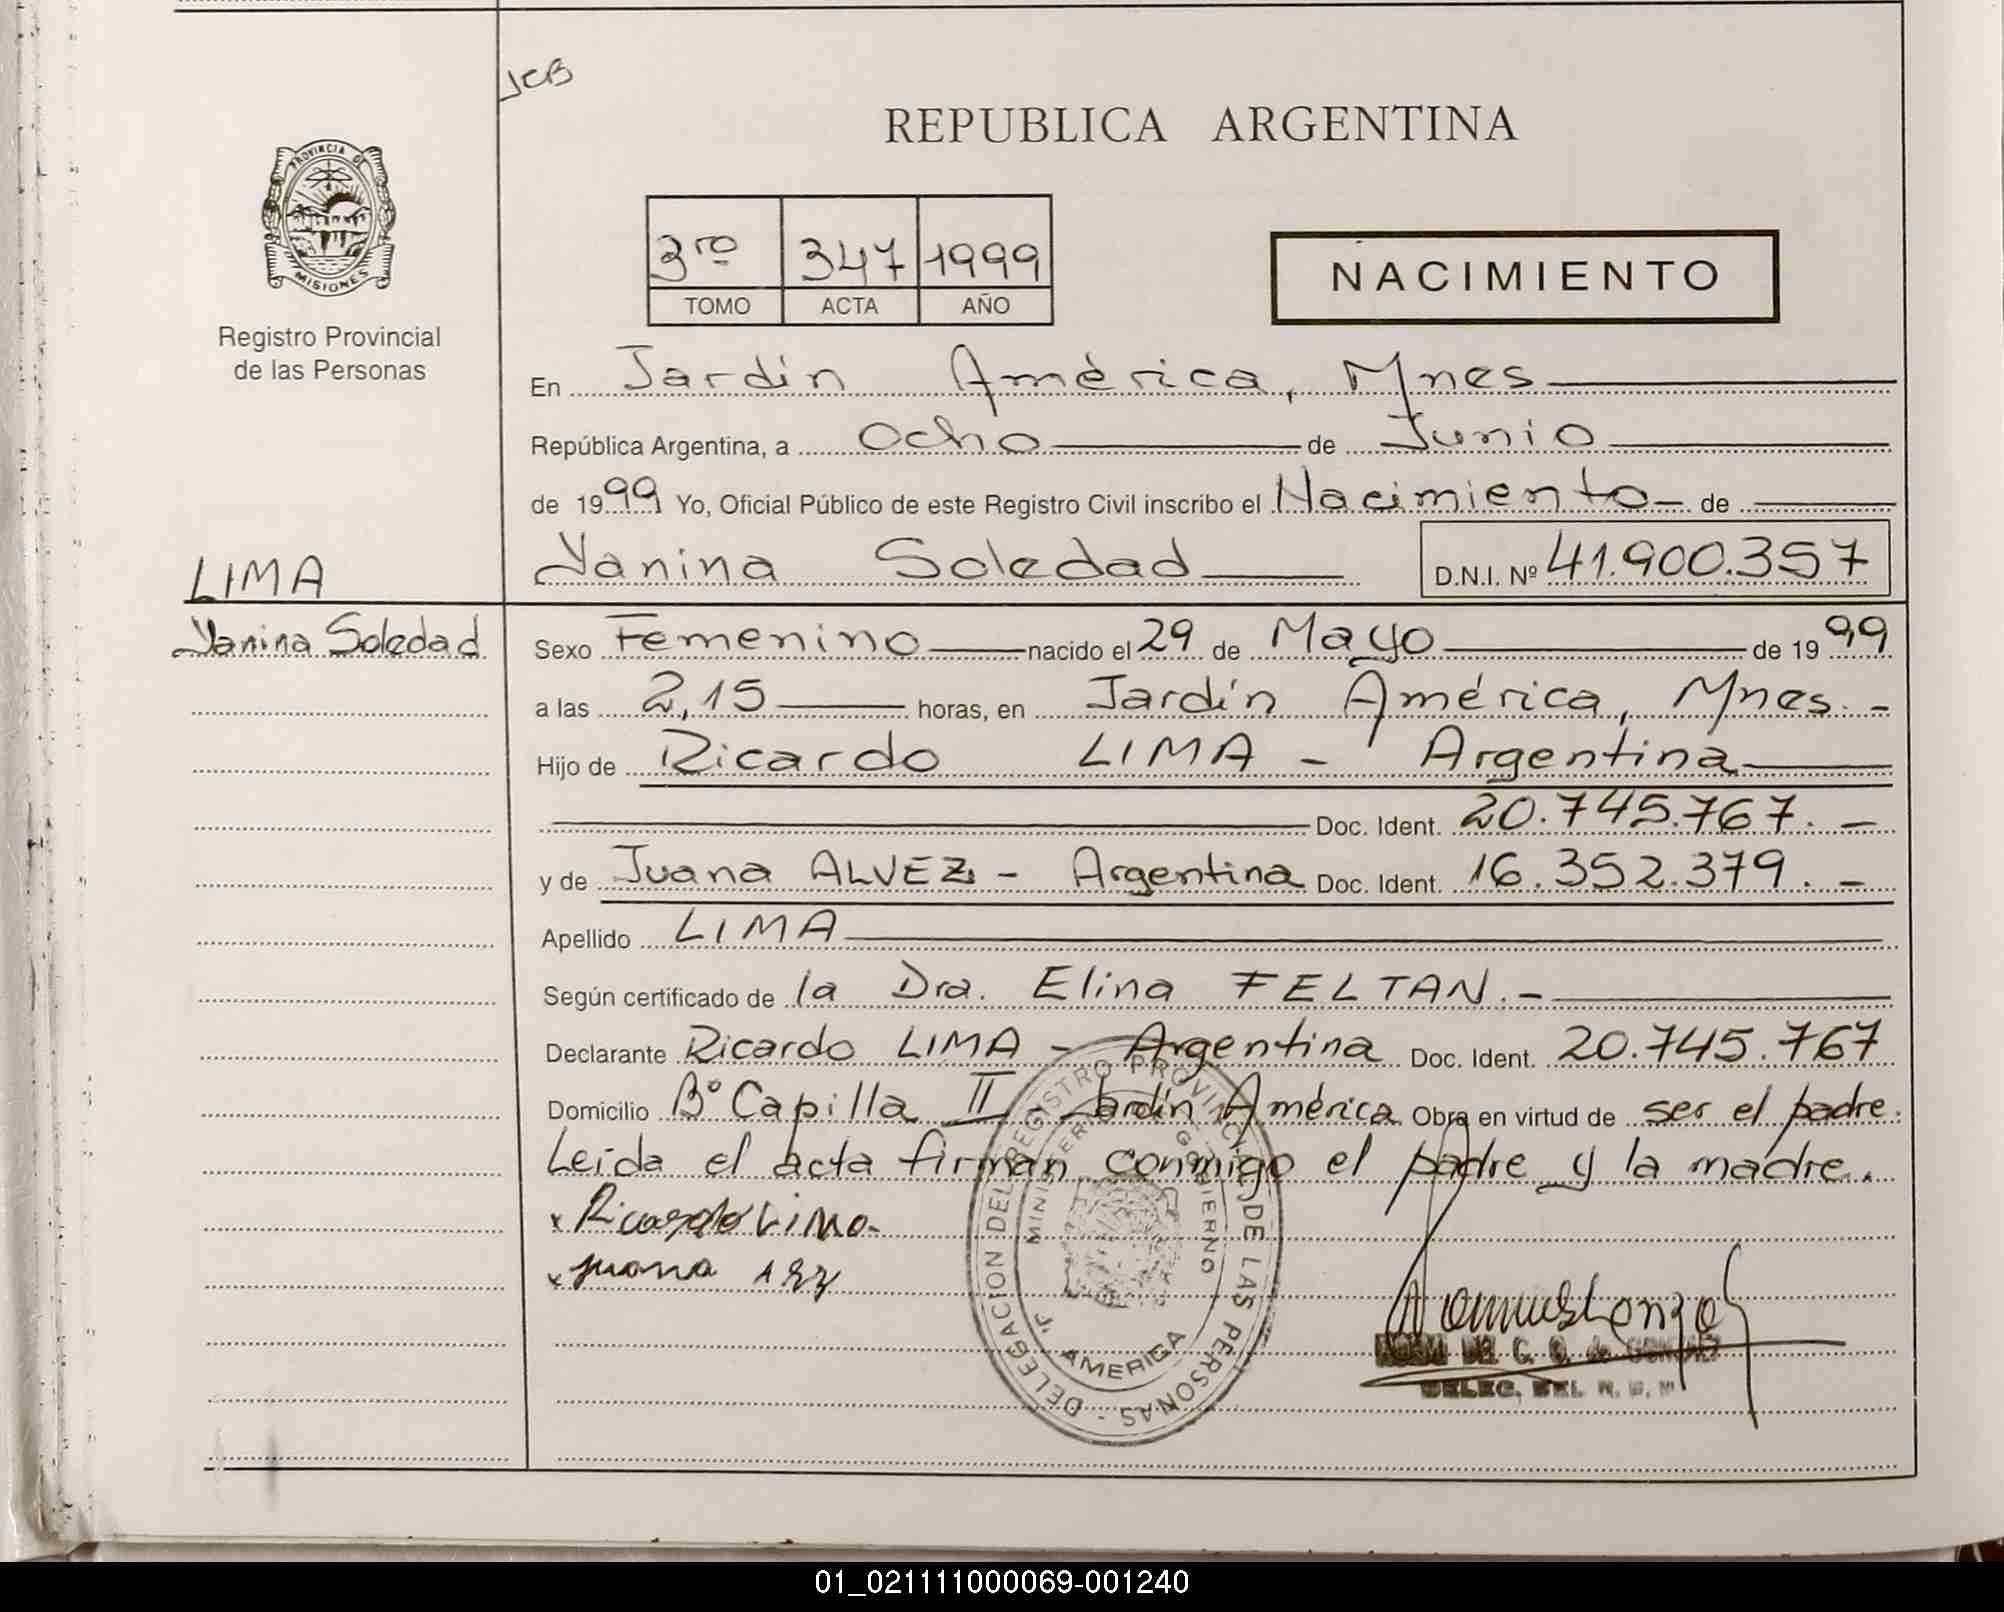 JCB
REPUBLICA ARGENTINA
PROVINCIA DE
MISIONES
Registro Provincial
de las Personas
3ro 347 1999
TOMO ACTA AÑO
NACIMIENTO
En Jardín América, Mnes
República Argentina, a Ocho de Junio
de 1999 Yo, Oficial Público de este Registro Civil inscribo el Nacimiento de
Yanina Soledad D.N.I. Nº 41.900.357
LIMA
Yanina Soledad
Sexo Femenino nacido el 29 de Mayo de 1999
a las 2,15 horas, en Jardín América, Mnes. -
Hijo de Ricardo LIMA - Argentina
Doc. Ident. 20.745.767. -
y de Juana ALVEZ - Argentina Doc. Ident. 16.352.379. -
Apellido LIMA
Según certificado de la Dra. Elina FELTAN. -
Declarante Ricardo LIMA - Argentina Doc. Ident. 20.745.767
Domicilio Bº Capilla II - Jardín América Obra en virtud de ser el padre.
Leída el acta firman conmigo el padre y la madre.
x Ricardo Lima
x Juana
DELEGACION DEL REGISTRO PROVINCIAL DE LAS PERSONAS -
MINISTERIO GOBIERNO
J. AMERICA
DEL C. de GONZALEZ
DELEG. DEL R. P. P.
01_021111000069-001240